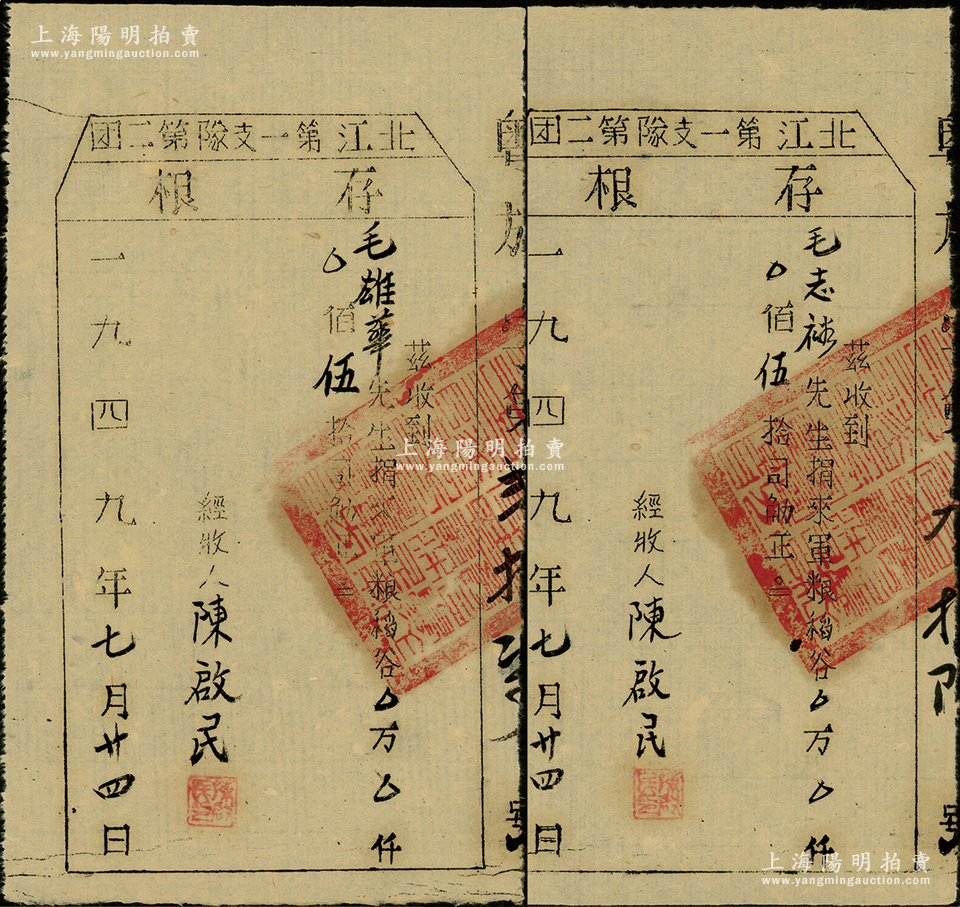 上海陽明拍賣
www.yangmingauction.com
北江第一支隊第二团
存根
茲收到
毛雄華先生捐來軍粮稻谷〇万〇仟
〇佰伍拾司觔正
經收人陳啟民
一九四九年七月廿四日
北江第一支隊第二团
存根
茲收到
毛志祿先生捐來軍粮稻谷〇万〇仟
〇佰伍拾司觔正
經收人陳啟民
一九四九年七月廿四日
上海陽明拍賣
www.yangmingauction.com
上海陽明拍賣
www.yangmingauction.com